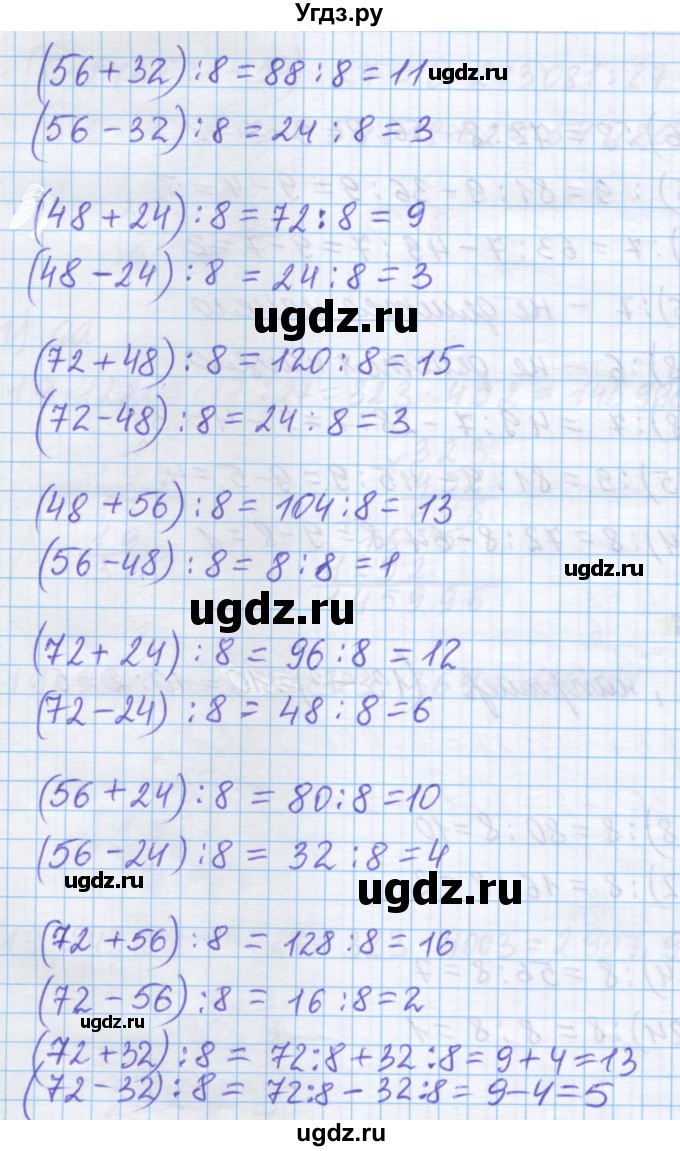 Угдз.ру
(56+32):8=88:8=11 ugdz.ru
(56-32):8=24:8=3
(48+24):8=72:8=9
(48-24):8=24:8=3
ugdz.ru
(72+48):8=120:8=15
(72-48):8=24:8=3
(48+56):8=104:8=13
(56-48):8=8:8=1
ugdz.ru
ugdz.ru
(72+24):8=96:8=12
(72-24):8=48:8=6
(56+24):8=80:8=10
(56-24):8=32:8=4
ugdz.ru
ugdz.ru
(72+56):8=128:8=16
(72-56):8=16:8=2
ugdz.ru
(72+32):8=72:8+32:8=9+4=13
(72-32):8=72:8-32:8=9-4=5
ugdz.ru